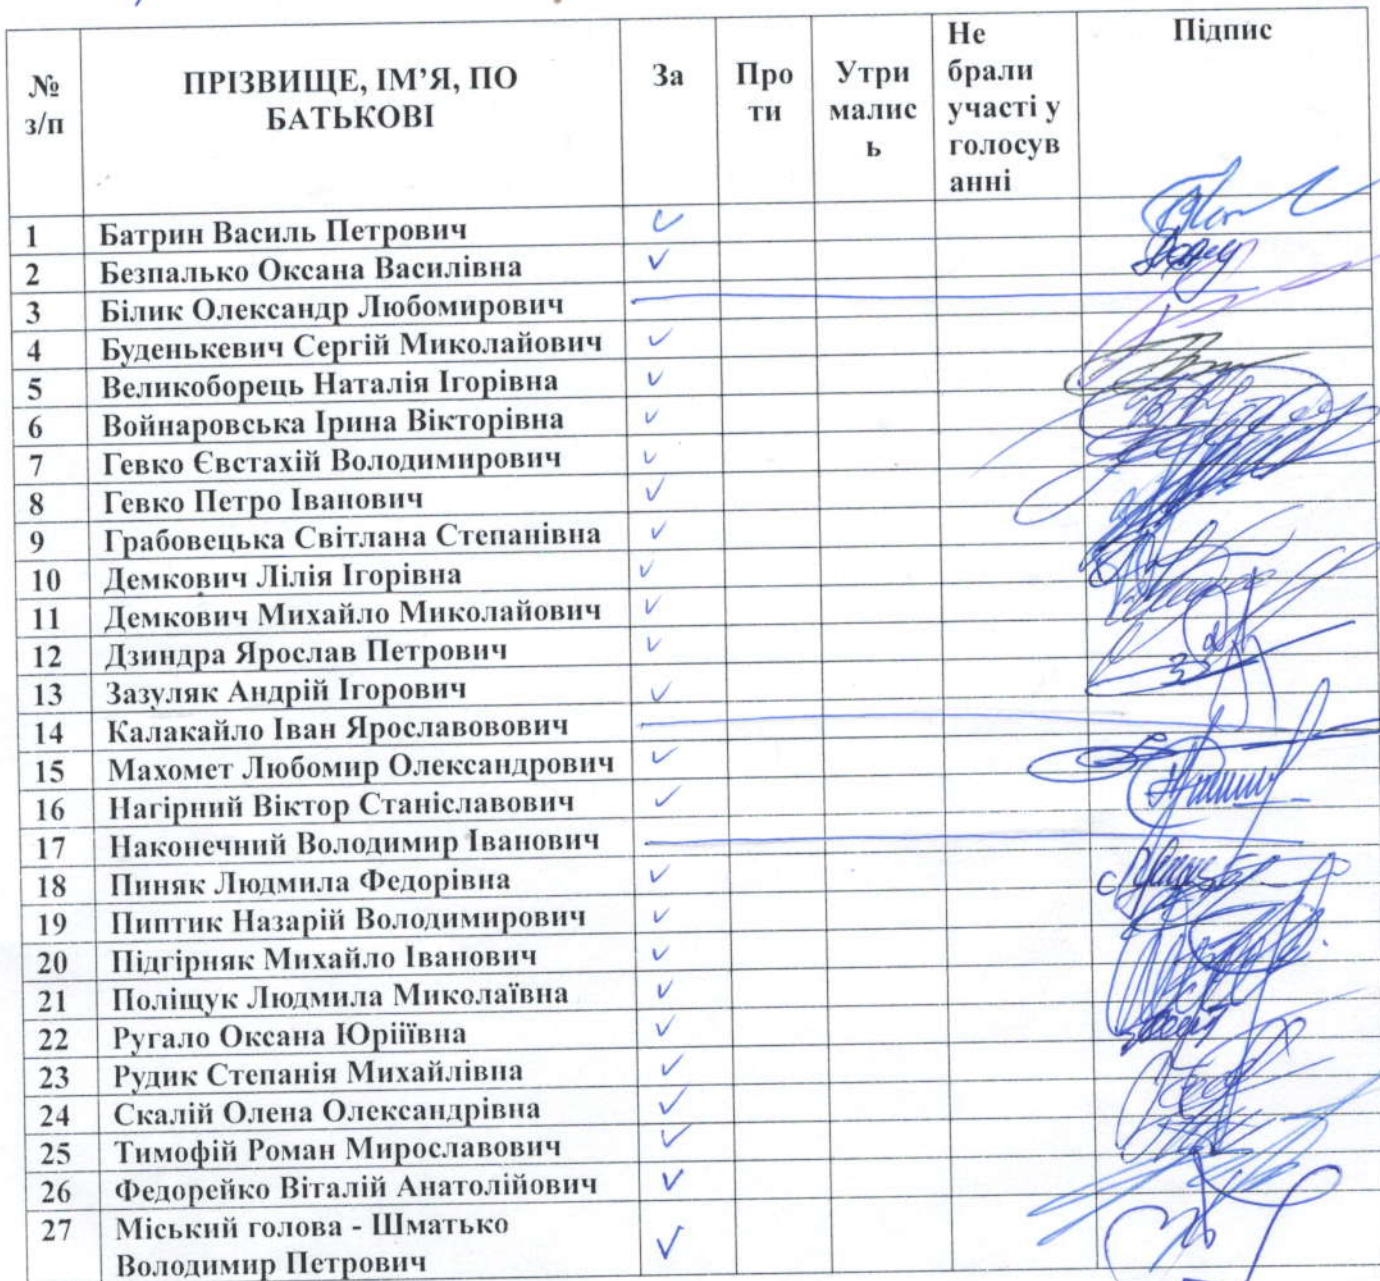 № з/п ПРІЗВИЩЕ, ІМ’Я, ПО БАТЬКОВІ За Про ти Утри малис ь Не брали участі у голосув анні Підпис
1 Батрин Василь Петрович ✓
2 Безпалько Оксана Василівна ✓
3 Білик Олександр Любомирович
4 Буденькевич Сергій Миколайович ✓
5 Великоборець Наталія Ігорівна ✓
6 Войнаровська Ірина Вікторівна ✓
7 Гевко Євстахій Володимирович ✓
8 Гевко Петро Іванович ✓
9 Грабовецька Світлана Степанівна ✓
10 Демкович Лілія Ігорівна ✓
11 Демкович Михайло Миколайович ✓
12 Дзиндра Ярослав Петрович ✓
13 Зазуляк Андрій Ігорович ✓
14 Калакайло Іван Ярославовович
15 Махомет Любомир Олександрович ✓
16 Нагірний Віктор Станіславович ✓
17 Наконечний Володимир Іванович
18 Пиняк Людмила Федорівна ✓
19 Пиптик Назарій Володимирович ✓
20 Підгірняк Михайло Іванович ✓
21 Поліщук Людмила Миколаївна ✓
22 Ругало Оксана Юріїївна ✓
23 Рудик Степанія Михайлівна ✓
24 Скалій Олена Олександрівна ✓
25 Тимофій Роман Мирославович ✓
26 Федорейко Віталій Анатолійович ✓
27 Міський голова - Шматько
Володимир Петрович ✓